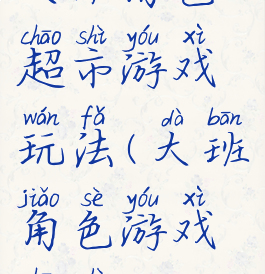 chāo shì yóu xì
超市游戏
wán fǎ dà bān
玩法(大班
jiǎo sè yóu xì
角色游戏